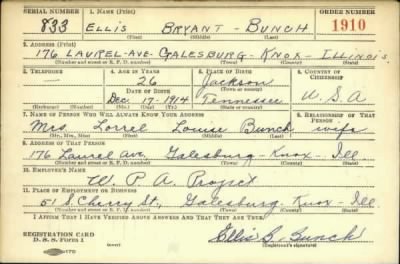 SERIAL NUMBER 1. NAME (Print) ORDER NUMBER
833 ELLIS BRYANT - BUNCH 1910
(First) (Middle) (Last)
2. ADDRESS (Print)
176 LAUREL-AVE- GALESBURG- KNOX- ILLINOIS
(Number and street or R. F. D. number) (Town) (County) (State)
3. TELEPHONE 4. AGE IN YEARS 5. PLACE OF BIRTH 6. COUNTRY OF CITIZENSHIP
— 26 Jackson
DATE OF BIRTH (Town or county)
Dec. 17-1914 Tennessee U.S.A
(Exchange) (Number) (Mo.) (Day) (Yr.) (State or country)
7. NAME OF PERSON WHO WILL ALWAYS KNOW YOUR ADDRESS 8. RELATIONSHIP OF THAT PERSON
Mrs Lorrel Louise Bunch wife
(Mr., Mrs., Miss) (First) (Middle) (Last)
9. ADDRESS OF THAT PERSON
176 Laurel Ave, Galesburg - Knox - Ill
(Number and street or R. F. D. number) (Town) (County) (State)
10. EMPLOYER'S NAME
W.P.A. Project
11. PLACE OF EMPLOYMENT OR BUSINESS
51 S. Cherry St, Galesburg - Knox - Ill
(Number and street or R. F. D. number) (Town) (County) (State)
I AFFIRM THAT I HAVE VERIFIED ABOVE ANSWERS AND THAT THEY ARE TRUE.
REGISTRATION CARD
D. S. S. Form 1
Ellis B. Bunch
(Registrant's signature)